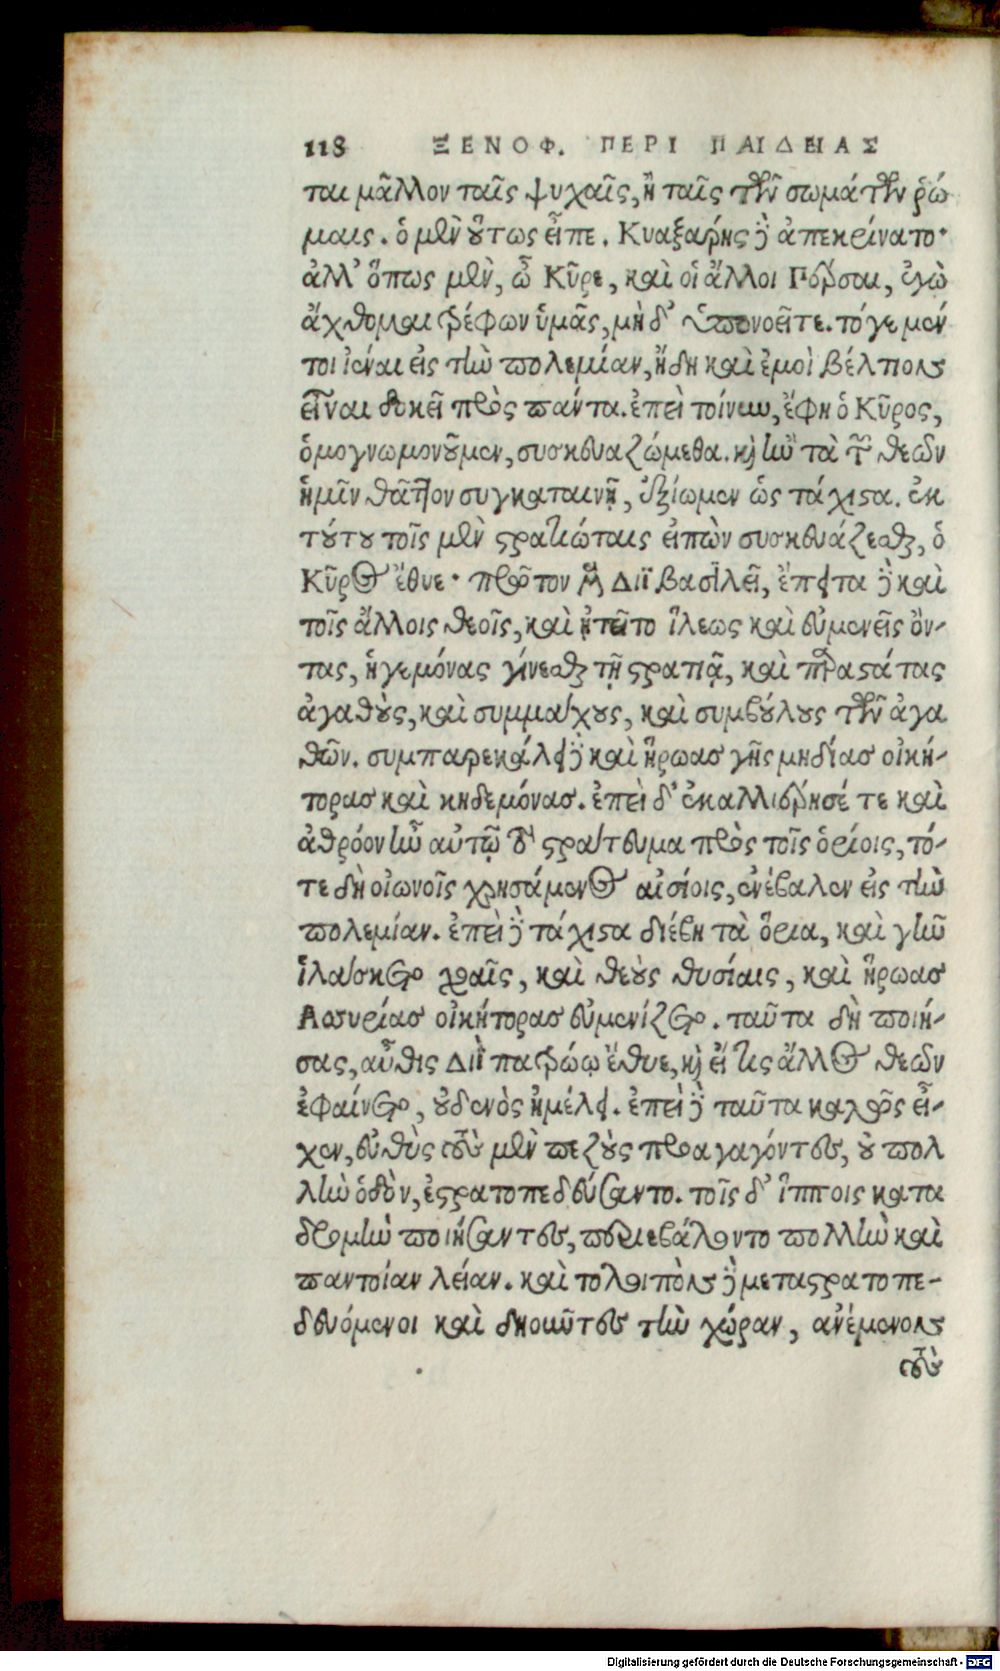 118 ΞΕΝΟΦ. ΠΕΡΙ ΠΑΙΔΕΙΑΣ
ται μᾶλλον ταῖς ψυχαῖς, ἢ ταῖς τῶν σωμάτων ῥώ
μαις. ὁ μὲν οὕτως εἶπε. Κυαξάρης δὲ ἀπεκρίνατο·
ἀλλ' ὅπως μὲν, ὦ Κῦρε, καὶ οἱ ἄλλοι Πέρσαι, ἐγὼ
ἄχθομαι τρέφων ὑμᾶς, μὴ δ' ὑπονοεῖτε. τό γε μέν
τοι ἰέναι εἰς τὴν πολεμίαν, ἤδη καὶ ἐμοὶ βέλτιον
εἶναι δοκεῖ πρὸς πάντα. ἐπεὶ τοίνυν, ἔφη ὁ Κῦρος,
ὁμογνωμονοῦμεν, συσκευαζώμεθα. καὶ ἢν τὰ τῶν θεῶν
ἡμῖν θᾶττον συγκαταινῇ, ἐξίωμεν ὡς τάχιστα. ἐκ
τούτου τοῖς μὲν στρατιώταις εἰπὼν συσκευάζεσθαι, ὁ
Κῦρος ἔθυε· πρῶτον μὲν Διῒ βασιλεῖ, ἔπειτα δὲ καὶ
τοῖς ἄλλοις θεοῖς, καὶ ᾐτεῖτο ἵλεως καὶ εὐμενεῖς ὄν-
τας, ἡγεμόνας γίνεσθαι τῇ στρατιᾷ, καὶ παραστάτας
ἀγαθοὺς, καὶ συμμάχους, καὶ συμβούλους τῶν ἀγα
θῶν. συμπαρεκάλει δὲ καὶ ἥρωας γῆς μηδίας οἰκή-
τορας καὶ κηδεμόνας. ἐπεὶ δ' ἐκαλλιέρησέ τε καὶ
ἀθρόον ἦν αὐτῷ τὸ στράτευμα πρὸς τοῖς ὁρίοις, τό-
τε δὴ οἰωνοῖς χρησάμενος αἰσίοις, ἐνέβαλεν εἰς τὴν
πολεμίαν. ἐπεὶ δὲ τάχιστα διέβη τὰ ὅρια, καὶ γῆν
ἱλάσκετο χοαῖς, καὶ θεοὺς θυσίαις, καὶ ἥρωας
Ἀσσυρίας οἰκήτορας εὐμενίζετο. ταῦτα δὴ ποιή-
σας, αὖθις Διῒ πατρώῳ ἔθυε, καὶ εἴ τις ἄλλος θεῶν
ἐφαίνετο, οὐδενὸς ἠμέλει. ἐπεὶ δὲ ταῦτα καλῶς εἶ-
χεν, εὐθὺς τοὺς μὲν πεζοὺς προαγαγόντες, οὐ πολ
λὴν ὁδὸν, ἐστρατοπεδεύσαντο. τοῖς δ' ἵπποις κατα
δρομὴν ποιήσαντες, περιεβάλοντο πολλὴν καὶ
παντοίαν λείαν. καὶ τὸ λοιπὸν δὲ μεταστρατοπε-
δευόμενοι καὶ δῃοῦντες τὴν χώραν, ἀνέμενον
τοὺς
Digitalisierung gefördert durch die Deutsche Forschungsgemeinschaft - DFG